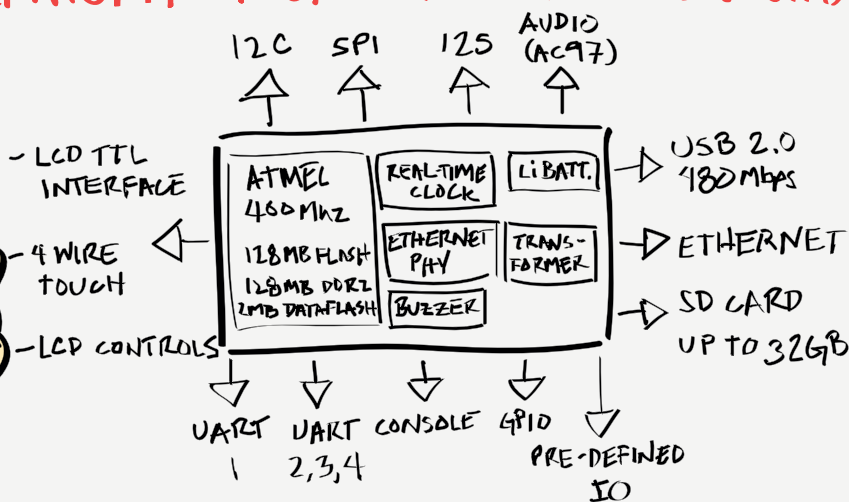 I2C SPI I2S AUDIO
(AC97)
- LCD TTL
INTERFACE
- 4 WIRE
TOUCH
- LCD CONTROLS
ATMEL
400 MHZ
128MB FLASH
128MB DDR2
2MB DATAFLASH
REAL-TIME
CLOCK
Li BATT.
ETHERNET
PHY
TRANS-
FORMER
BUZZER
USB 2.0
480 Mbps
ETHERNET
SD CARD
UP TO 32GB
UART
1
UART
2,3,4
CONSOLE
GPIO
PRE-DEFINED
IO